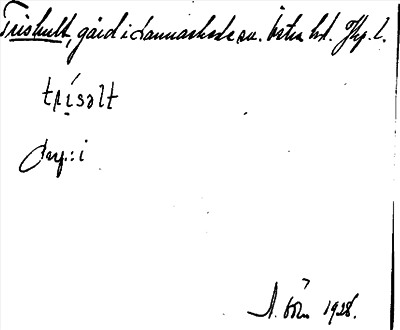 Trishult, gård i Dannaskede sn. Östra hd. Jkp. l.
trísəlt
Anv.: i
A. 1928.